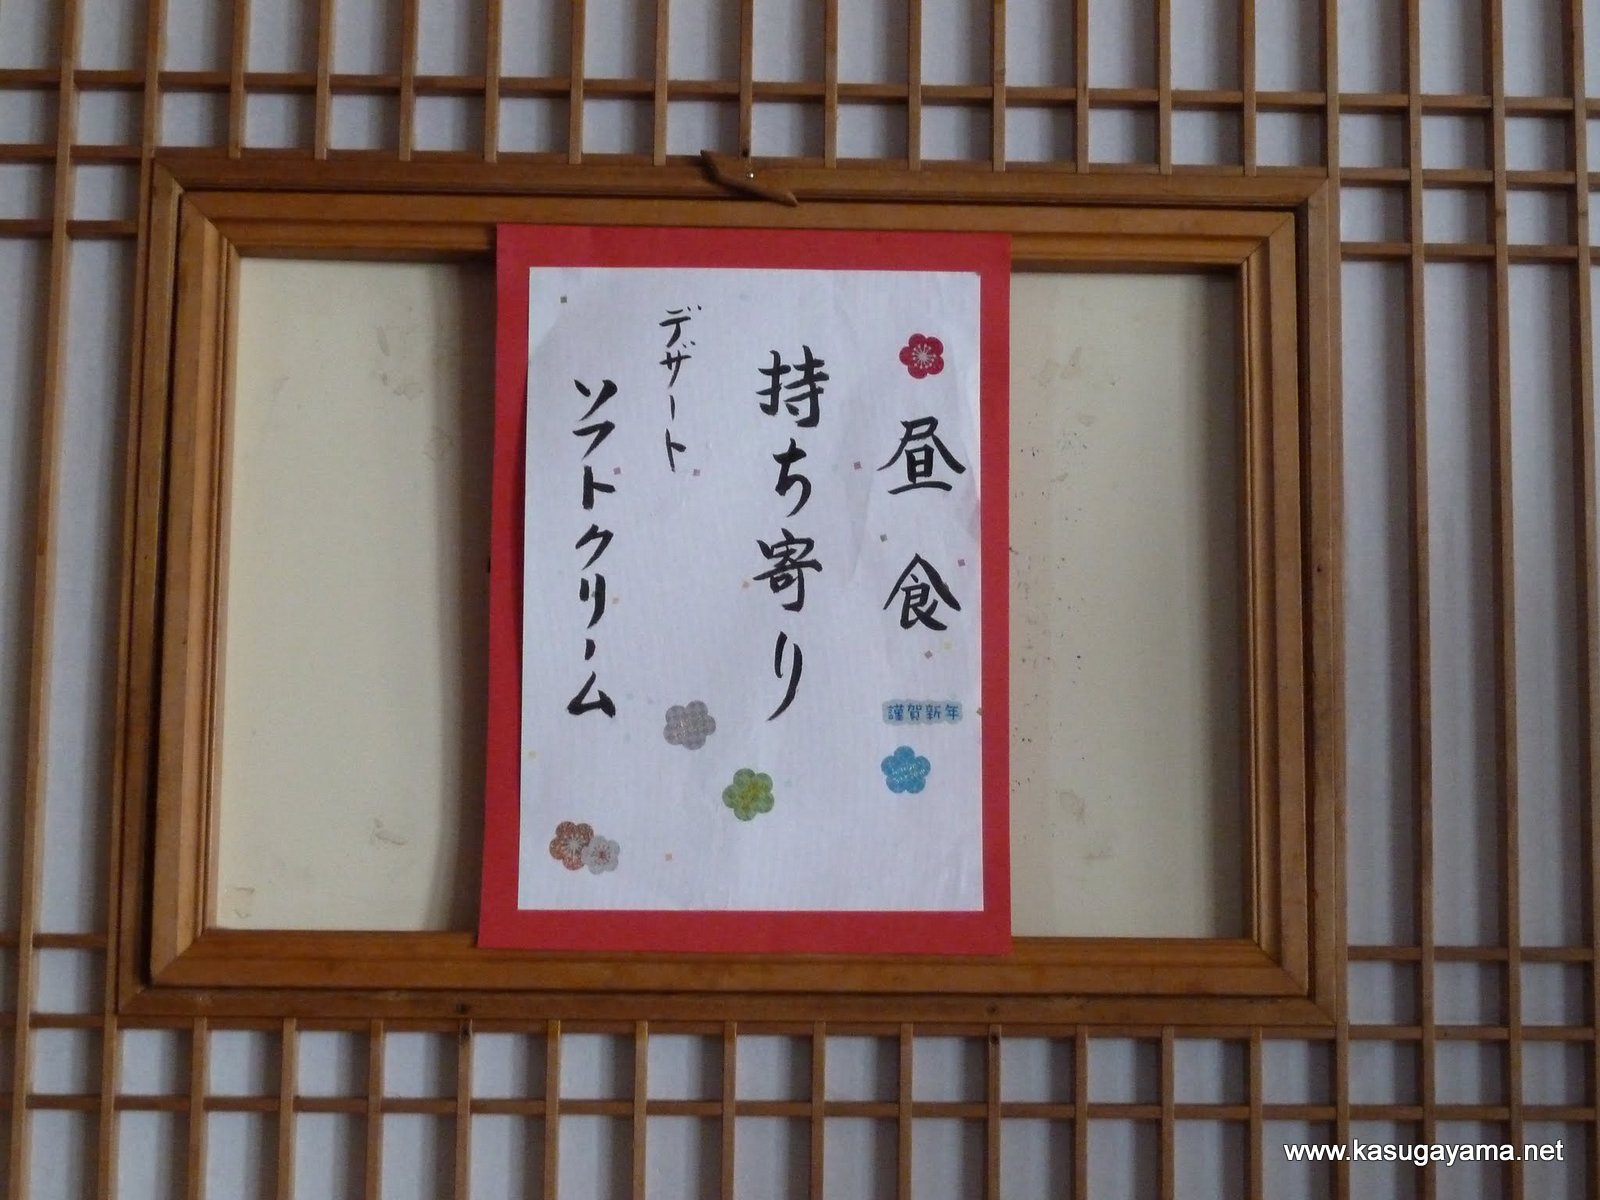 昼食
謹賀新年
持ち寄り
デザート
ソフトクリーム
www.kasugayama.net